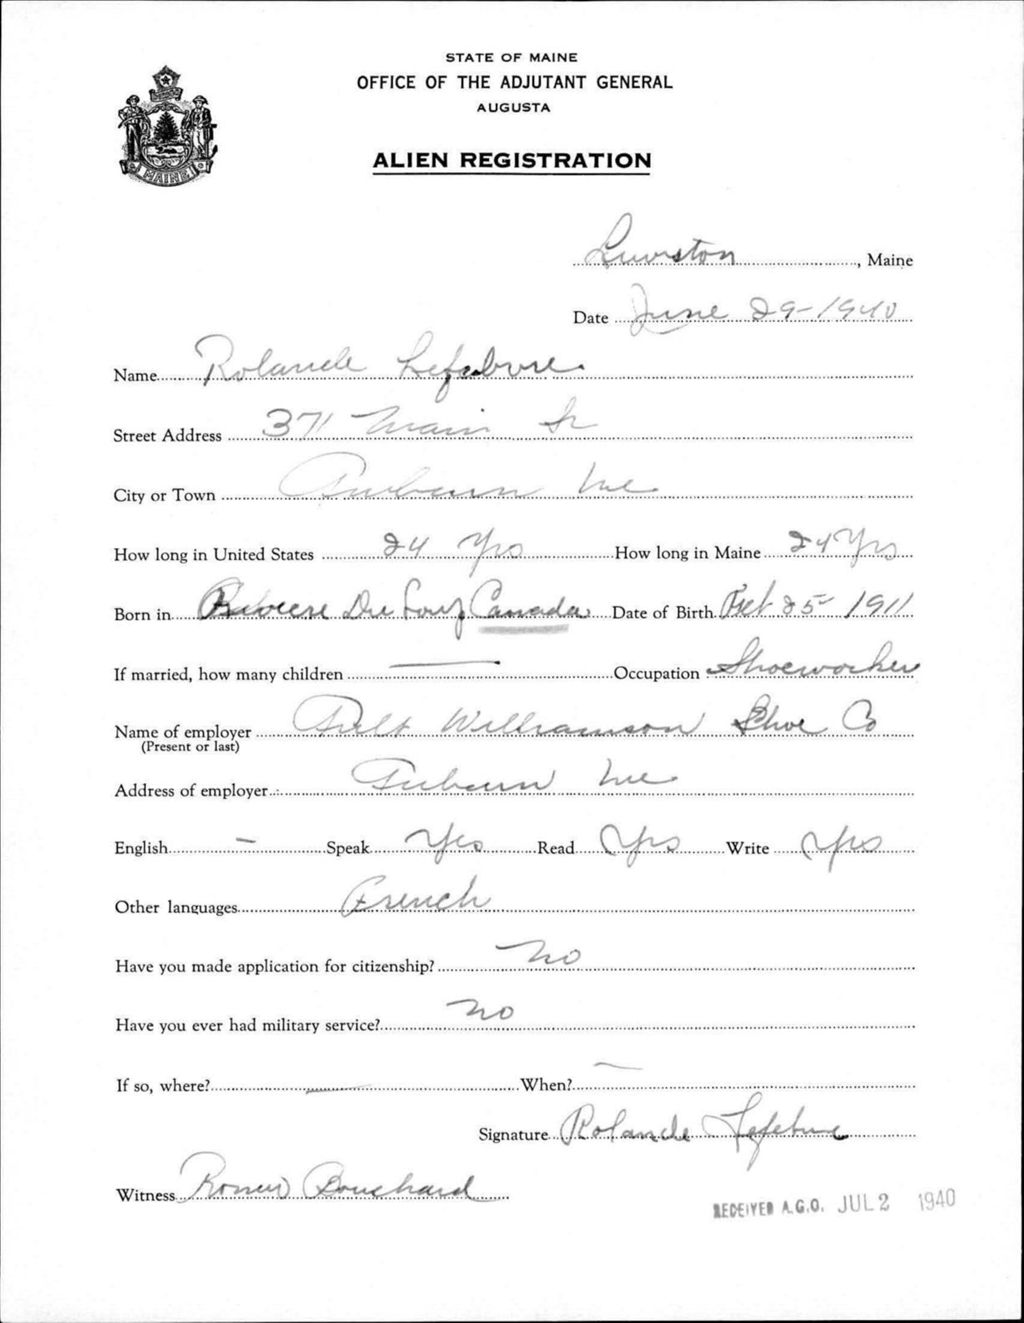 STATE OF MAINE
OFFICE OF THE ADJUTANT GENERAL
AUGUSTA
MAINE
ALIEN REGISTRATION
Lewiston, Maine
Date June 29-1940
Name Rolande Lefebvre
Street Address 371 Main St
City or Town Auburn Me
How long in United States 24 Yrs How long in Maine 24 Yrs
Born in Riviere Du Loup Canada Date of Birth 25 1911
If married, how many children — Occupation Shoeworker
Name of employer Williamson Shoe Co
(Present or last)
Address of employer Auburn Me
English — Speak Yes Read Yes Write Yes
Other languages French
Have you made application for citizenship? No
Have you ever had military service? No
If so, where? — When? —
Signature Rolande Lefebvre
Witness Bouchard
RECEIVED A.G.O. JUL 2 1940